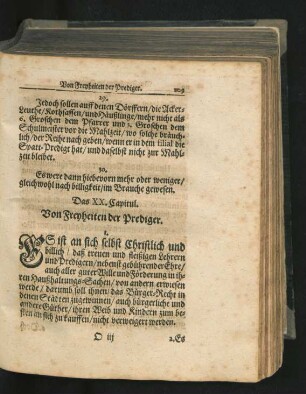 Von Freyheiten der Prediger.
29.
Jedoch sollen auff denen Dörffern/die Acker-
Leuthe/Kothsassen/und Häußlinge/mehr nicht als
6. Groschen dem Pfarrer und 3. Groschen dem
Schulmeister vor die Mahlzeit/wo solche bräuch-
lich/der Reihe nach geben/wenn er in dem Filial die
Spatt-Predigt hat/und daselbst nicht zur Mahl-
zeit bleibet.
30.
Es were dann hiebevorn mehr oder weniger/
gleichwohl nach billigkeit/im Brauche gewesen.
Das XX. Capitul.
Von Freyheiten der Prediger.
1.
ES ist an sich selbst Christlich und
billich/daß treuen und fleißigen Lehrern
und Predigern/nebenst gebührender Ehre/
auch aller guter Wille und Förderung in ih-
ren Haußhaltungs-Sachen/von andern erwiesen
werde/darumb soll ihnen/das Bürger-Recht in
denen Städten zugewinnen/auch bürgerliche und
andere Güther/ihren Weib und Kindern zum be-
sten an sich zu kauffen/nicht verweigert werden.
O iij
2. Es